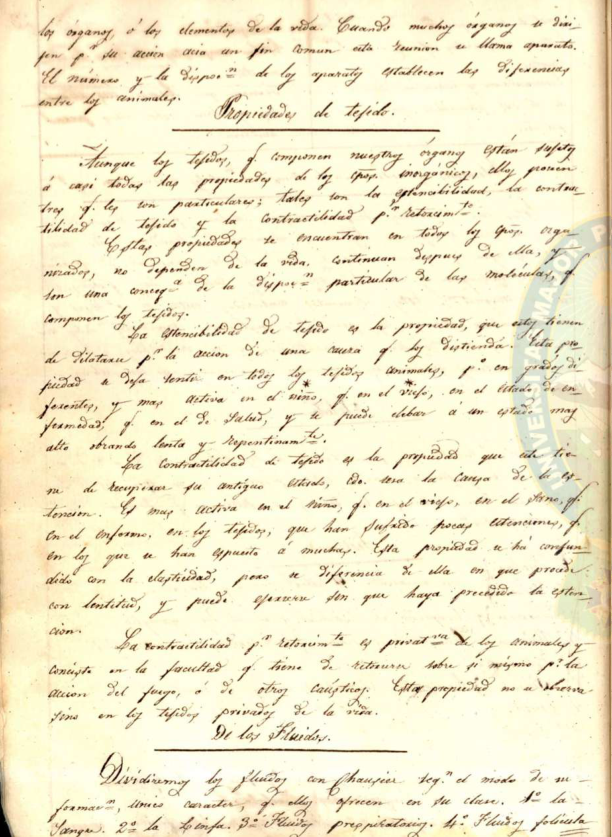 los órganos, ó los elementos de la vida. Cuando muchos órganos se diri-
jen pr. su accion acia un fin comun esta reunion se llama aparato.
El número y la dispocn. de los aparatos establecen las diferencias
entre los animales.
Propiedades de tejido.
Aunque los tejidos, q. componen nuestros órganos están sujetos
á casi todas las propiedades de los cpos. inorgánicos, ellos poseen
tres q. les son particulares; tales son la estencibilidad, la contrac-
tilidad de tejido y la contractilidad pr. retorcimto.
Estas própiedades se encuentran en todos los cpos. orga-
nizados, no dependen de la vida. continuan despues de ella, y
son una conceqa. de la dispocn. particular de las moleculas, q.
componen los tejidos.
La estencibilidad de tejido es la propiedad, que estos tienen
de dilatarse pr. la accion de una causa q. los distienda. Esta pro-
piedad se deja sentir en todos los tejidos animales, po. en grados di-
ferentes, y mas activa en el niño, q. en el viejo, en el estado de en-
fermedad, q. en el de Salud, y se puede elebar a un estado mas
alto obrando lenta y repentinamte.
La contractilidad de tejido es la propiedad que este tie-
ne de recuperar su antiguo estado, cdo. sesa la causa de la es-
tencion. Es mas activa en el niño, q. en el viejo, en el sano, q.
en el enfermo, en los tejidos, que han sufrido pocas estenciones, q.
en los que se han espuesto á muchas. Esta propiedad se há confun-
dido con la elasticidad, pero se diferencia de ella en que procede
con lentitud, y puede ejercerse sin que haya precedido la esten-
cion.
La contractilidad pr. retorcimto. es privatva. de los animales y
conciste en la facultad q. tiene de retraerse sobre si mismo pr. la
accion del fuego, ó de otros caústicos. Esta propiedad no se observa
sino en los tejidos privados de la vida.
De los Fluidos.
Dividiremos los fluidos con Chausier segn. el modo de su
formacn., unico caracter, q. ellos ofrecen en su clase. 1º la
Sangre. 2º la Linfa. 3º Fluidos prespiratorios. 4º Fluidos folicula